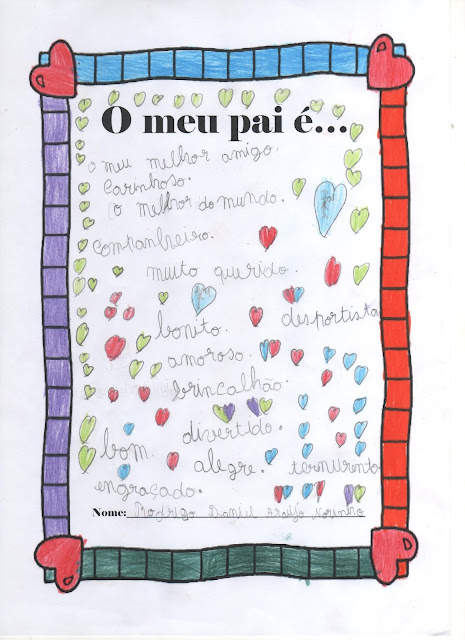 O meu pai é...
o meu melhor amigo.
Carinhoso.
O melhor do mundo.
companheiro.
muito querido.
bonito. desportista
amoroso.
brincalhão.
divertido.
bom. alegre. ternurento
engraçado.
Nome: Rodrigo Daniel Araújo